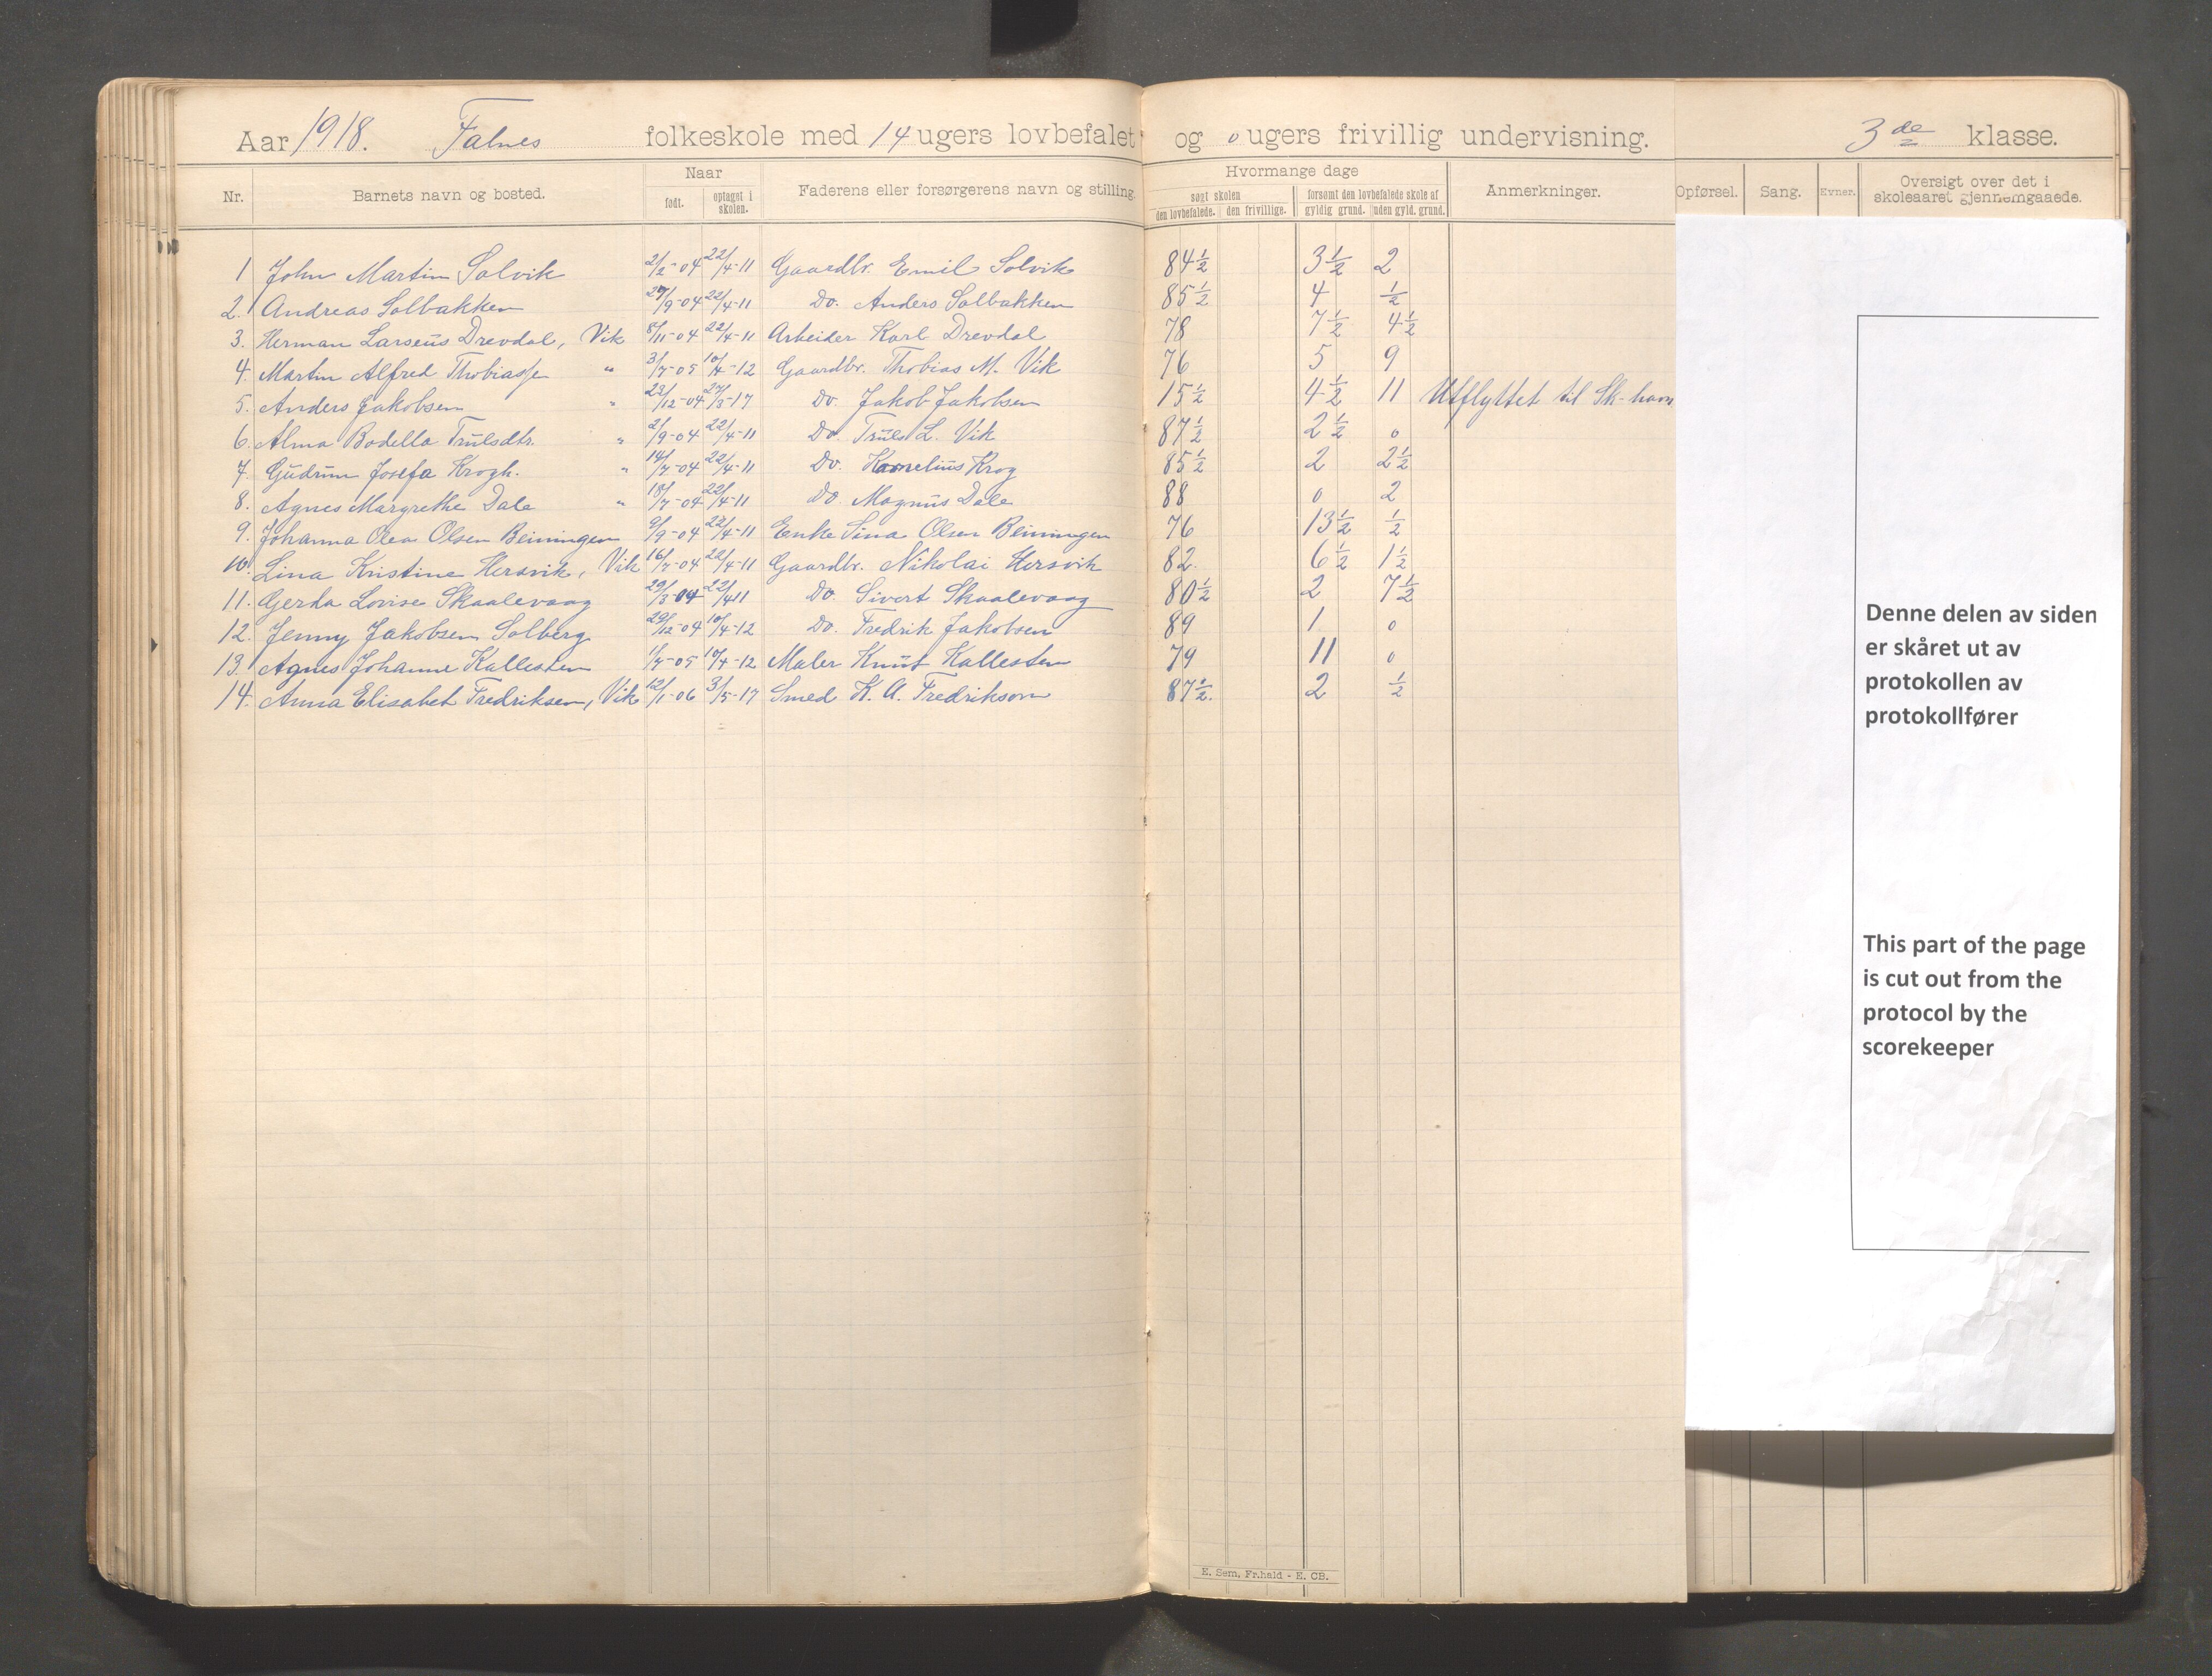 Aar 1918. Falnes folkeskole med 14 ugers lovbefalet og 0 ugers frivillig undervisning. 3de klasse.
Nr. Barnets navn og bosted. Naar født. optaget i skolen. Faderens eller forsørgerens navn og stilling. Hvormange dage søgt skolen den lovbefalede. den frivillige. forsømt den lovbefalede skole af gyldig grund. uden gyld. grund. Anmerkninger. Opførsel. Sang. Evner. Oversigt over det i skoleaaret gjennemgaaede.
1 John Martin Solvik 2/2-04 22/4-11 Gaardbr. Emil Solvik 84 1/2 3 1/2 2
2. Andreas Solbakken 29/9-04 22/4-11 Do. Anders Solbakken 85 1/2 4 1/2
3. Herman Larseüs Drevdal, Vik 8/11-04 22/4-11 Arbeider Karl Drevdal 78 7 1/2 4 1/2
4. Martin Alfred Thobiassen " 3/7-05 10/4-12 Gaardbr. Thobias M. Vik 76 5 9
5. Anders Jakobsen " 23/12-04 27/3-17 Do. Jakob Jakobsen 15 1/2 4 1/2 11 Utflyttet til Sk-havn
6. Alma Bodella Trülsdtr. " 2/9-04 22/4-11 Do. Trüls L. Vik 87 1/2 2 1/2 0
7. Güdrün Josefa Krogh. " 14/7-04 22/4-11 Do. Kornelius Krog 85 1/2 2 2 1/2
8. Agnes Margrethe Dale " 18/7-04 22/4-11 Do. Magnüs Dale 88 0 2
9. Johanna Olea Olsen Beiningen 9/9-04 22/4-11 Enke Sina Olsen Beiningen 76 13 1/2 1/2
10. Lina Kristine Hersvik, Vik 16/7-04 22/4-11 Gaardbr. Nikolai Hersvik 82. 6 1/2 1 1/2
11. Gerda Lovise Skaalevaag 29/3-04 22/4 11 Do. Sivert Skaalevaag 80 1/2 2 7 1/2
12. Jenny Jakobsen Solberg 29/12-04 10/4-12 Do. Fredrik Jakobsen 89 1 0
13. Agnes Johanne Kallesten 1/7-05 10/4-12 Maler Knüt Kallesten 79 11 0
14. Anna Elisabet Fredriksen, Vik 12/1-06 3/5-17 Smed K. A. Fredriksen 87 1/2. 2 1/2
Denne delen av siden
er skåret ut av
protokollen av
protokollfører
This part of the page
is cut out from the
protocol by the
scorekeeper
E. Sem, Fr.hald - E. CB.